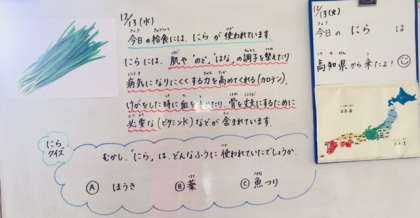 12/13(水)
今日の給食には、にらが使われています
にらには、肌や"のど"、"はな"の調子を整えたり
病気になりにくくする力を高めてくれる(カロテン)、
けがをした時に血を止めたり、骨を丈夫にするために
必要な(ビタミンK)などが含まれています。
にら
クイズ
むかし、「にら」は、どんなふうに使われていたでしょうか。
Ⓐ ほうき
Ⓑ 薬
Ⓒ 魚つり
12/13(水)
今日の にら は
高知県から来たよ!